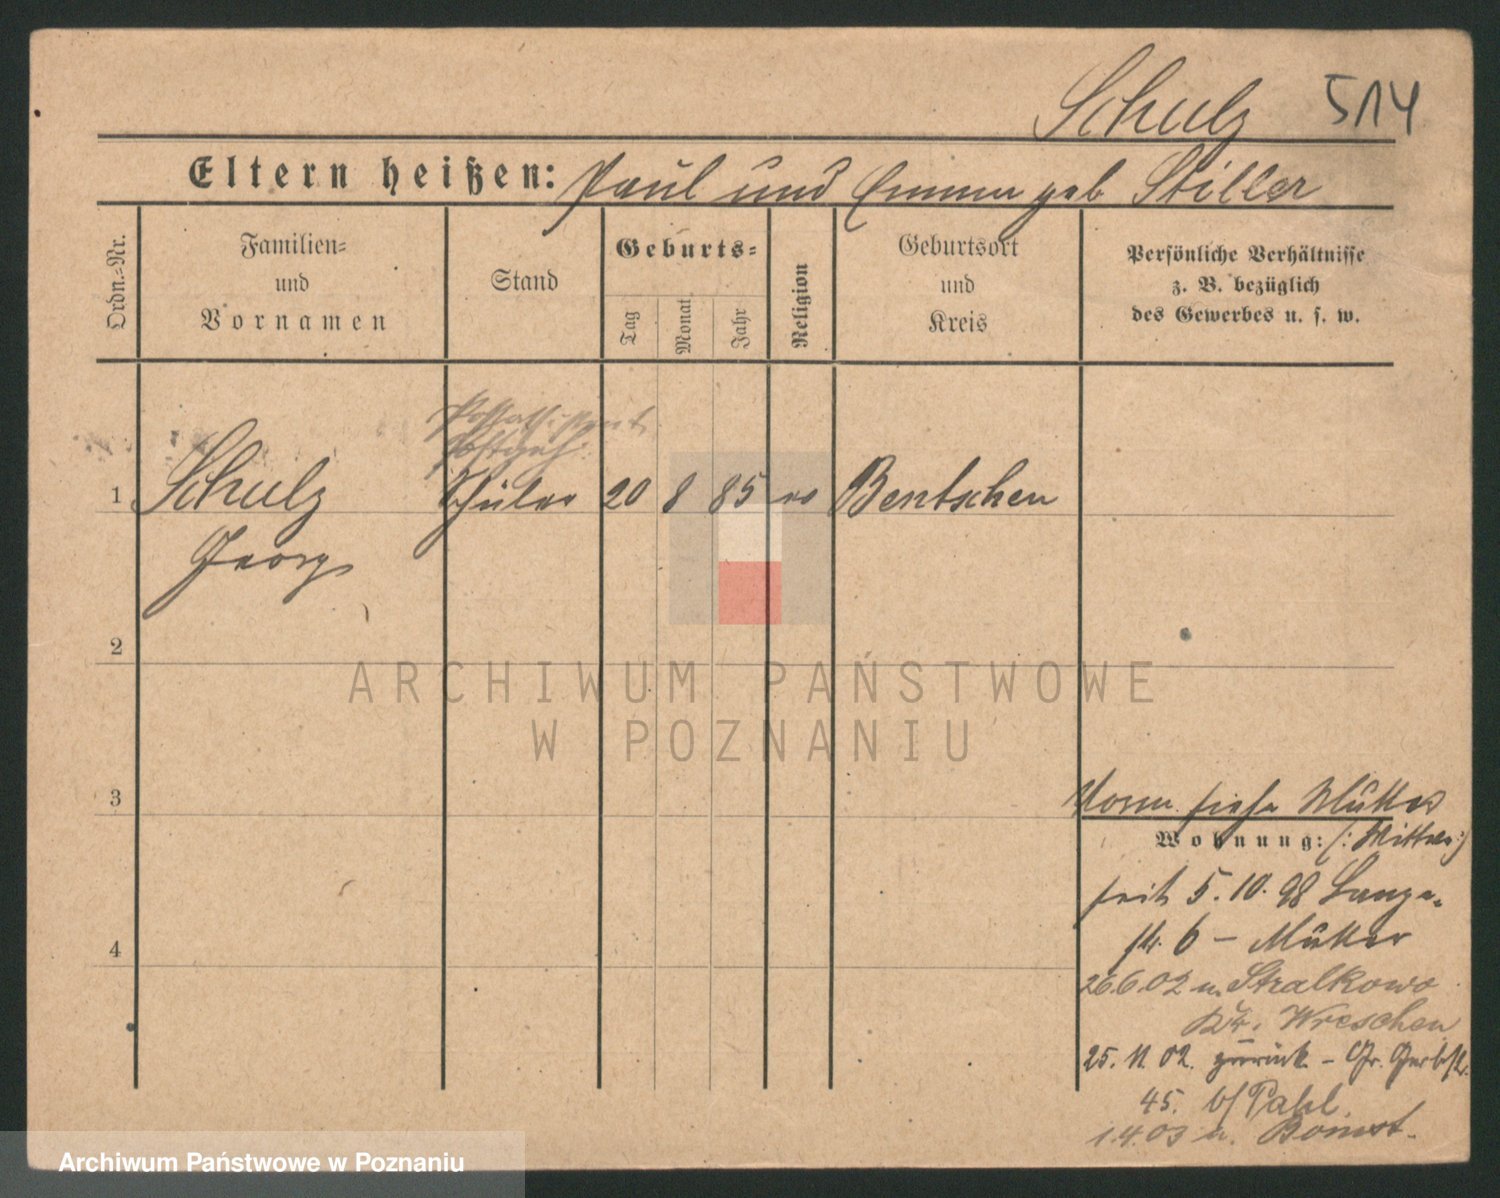 Schulz 514
Eltern heißen: Paul und Emma geb Stiller
Ordn.-Nr.
Familien-
und
Vornamen
Stand
Geburts-
Tag
Monat
Jahr
Religion
Geburtsort
und
Kreis
Persönliche Verhältnisse
z. B. bezüglich
des Gewerbes u. s. w.
Postassistent
Postgeh.
1 Schulz Schüler 20 8 85 ev Bentschen
Georg
2
3
4
Vorm. siehe Mutter
Wohnung: (: Wittwe :)
seit 5.10.98 Lange-
str. 6 - Mutter
26.6.02 n. Stralkowo
Kr. Wreschen
25.11.02. zurück - Gr. Gerbstr.
45. b/ Pahl.
1.4.03 n. Bomst.
ARCHIWUM PAŃSTWOWE
W POZNANIU
Archiwum Państwowe w Poznaniu